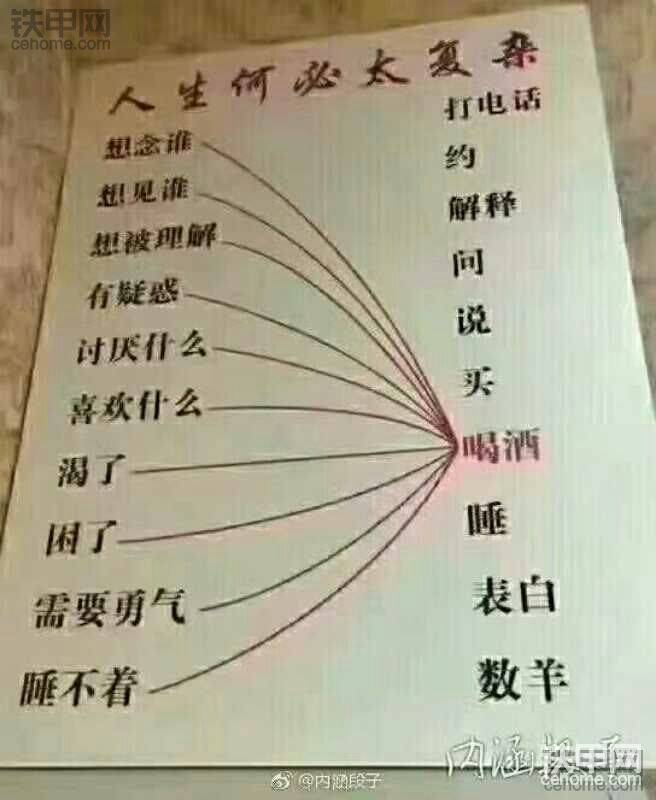 铁甲网
cehome.com
人生何必太复杂
想念谁
想见谁
想被理解
有疑惑
讨厌什么
喜欢什么
渴了
困了
需要勇气
睡不着
打电话
约
解释
问
说
买
喝酒
睡
表白
数羊
内涵段子
铁甲网
cehome.com
@内涵段子